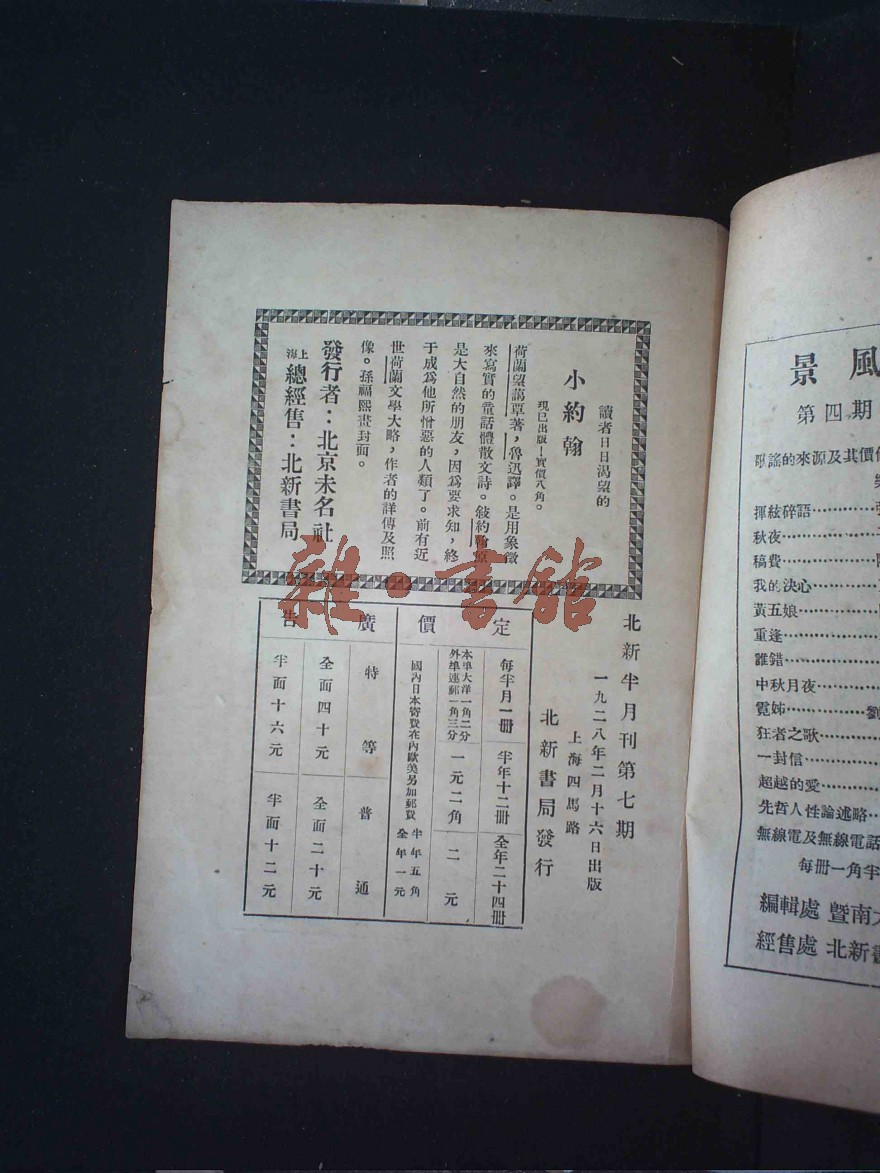 讀者日日渴望的
小約翰
現已出版！實價八角。
荷蘭望藹覃著，魯迅譯。是用象徵
來寫實的童話體散文詩。敍約翰原
是大自然的朋友，因爲要求知，終
于成爲他所憎惡的人類了。前有近
世荷蘭文學大略，作者的詳傳及照
像。孫福熙畫封面。
發行者：北京未名社
上海總經售：北新書局
北新半月刊第七期
一九二八年二月十六日出版
上海四馬路
北新書局發行
定價
每半月一册 半年十二册 全年二十四册
本埠大洋一角二分
外埠連郵一角三分
一元二角 二元
國內日本寄費在內歐美另加郵費 半年五角 全年一元
廣告
特等 普通
全面四十元 全面二十元
半面十六元 半面十二元
風
景
第四期
歌謠的來源及其價
揮絃碎語
秋夜
稿費
我的決心
黃五娘
重逢
誰錯
中秋月夜
霓姊 劉
狂者之歌
一封信
超越的愛
先哲人性論述略
無線電及無線電話
每册一角半
編輯處 暨南大
經售處 北新書
雜·書館